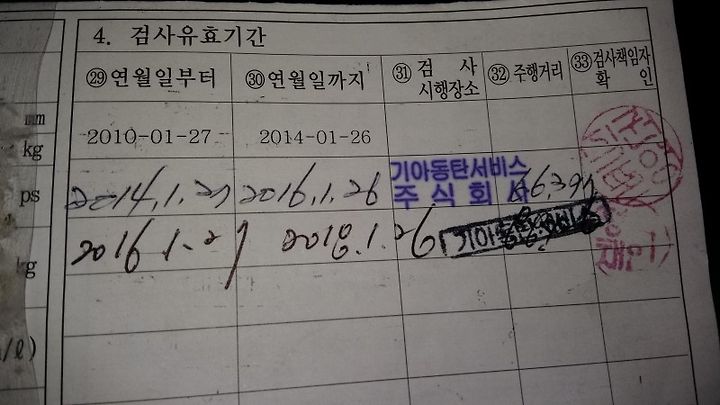 4. 검사유효기간
㉙연월일부터 ㉚연월일까지 ㉛검 사 시행장소 ㉜주행거리 ㉝검사책임자 확 인
mm
kg
2010-01-27 2014-01-26
ps
2014.1.27 2016.1.26 기아동탄서비스
주식회사
2016.1.27 2018.1.26 기아
kg
/ℓ)